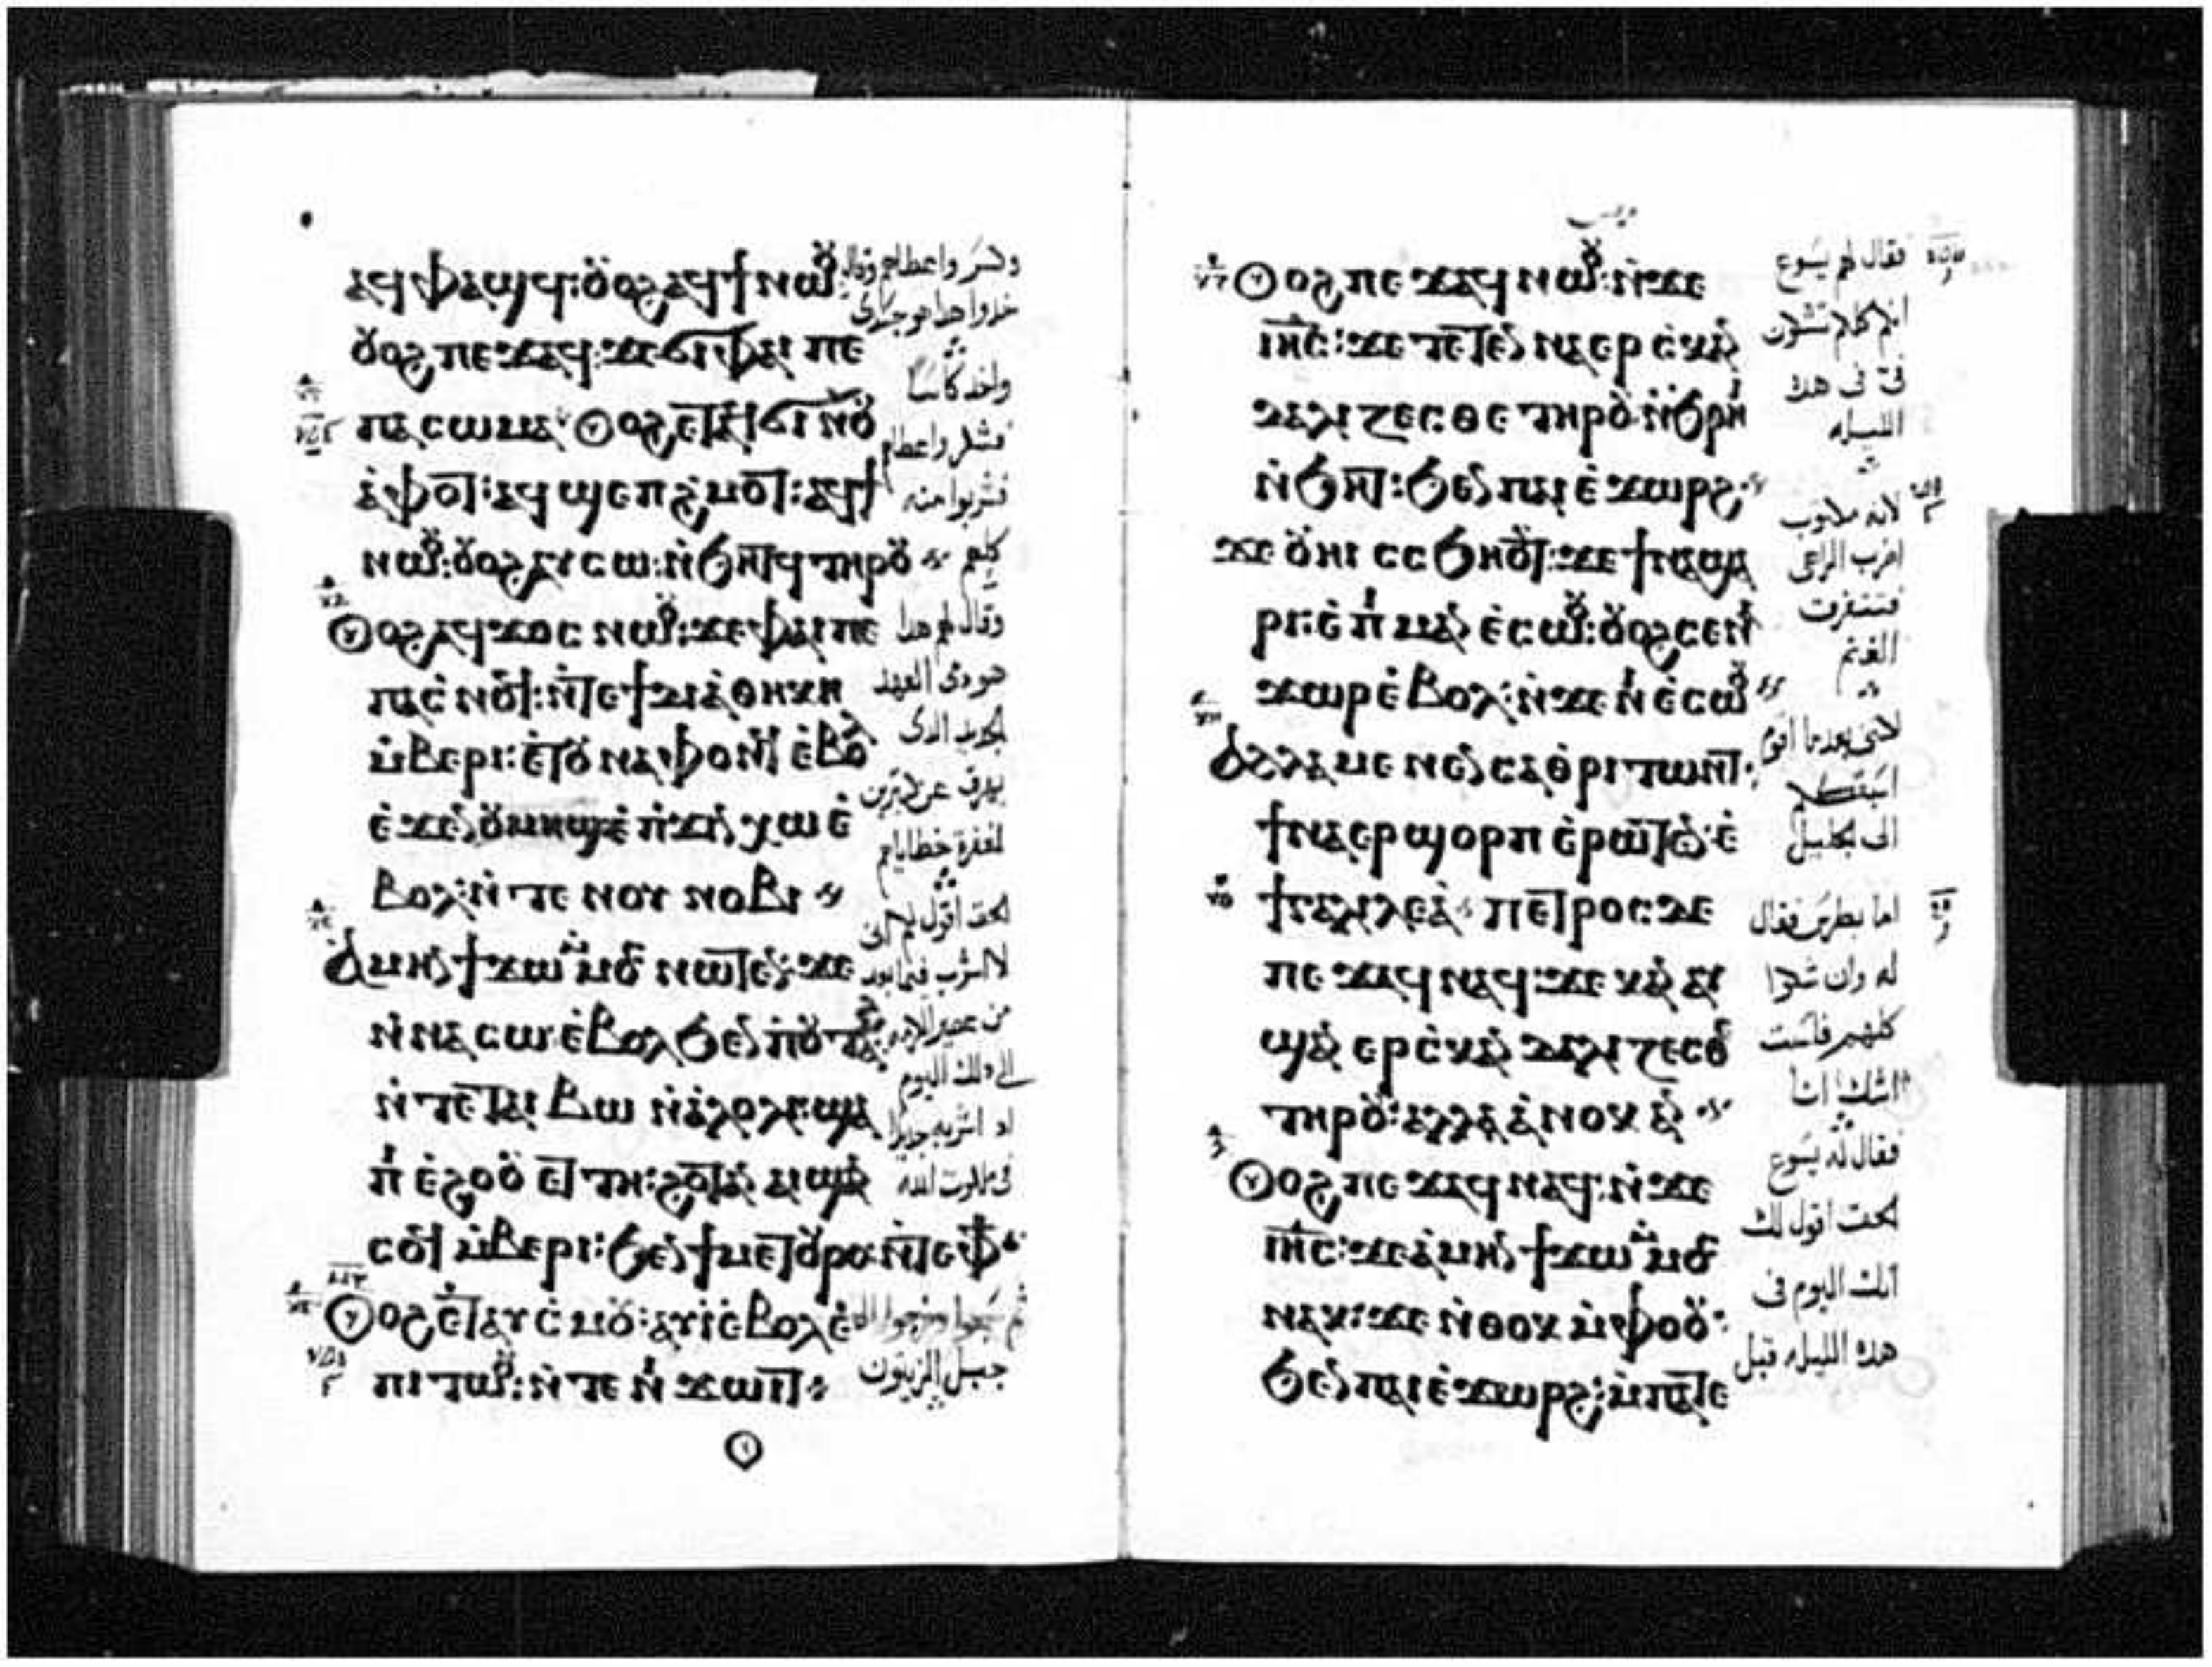 ⲁϥⲫⲁϣϥ: ⲟⲩⲟϩ ⲁϥϯ ⲛⲱⲟⲩ:
ⲟⲩⲟϩ ⲡⲉϫⲁϥ: ϫⲉ ϭⲓ ⲫⲁⲓ ⲡⲉ
ⲡⲁⲥⲱⲙⲁ ⲟⲩⲟϩ ⲉⲧⲁϥϭⲓ ⲛⲟⲩ
ⲁⲫⲟⲧ: ⲁϥϣⲉⲡϩⲙⲟⲧ: ⲁϥϯ
ⲛⲱⲟⲩ: ⲟⲩⲟϩ ⲁⲩⲥⲱ: ⲛϧⲏⲧϥ ⲧⲏⲣⲟⲩ
ⲟⲩⲟϩ ⲁϥϫⲟⲥ ⲛⲱⲟⲩ: ϫⲉ ⲫⲁⲓ ⲡⲉ
ⲡⲁⲥⲛⲟϥ: ⲛⲧⲉ ϯⲇⲓⲁⲑⲏⲕⲏ
ⲙⲃⲉⲣⲓ: ⲉⲧⲟⲩⲛⲁⲫⲟⲛϥ ⲉⲃⲟⲗ
ⲉϫⲉⲛ ⲟⲩⲙⲏϣ ⲉⲡϫⲓⲛⲭⲱ ⲉ
ⲃⲟⲗ: ⲛⲧⲉ ⲛⲟⲩⲛⲟⲃⲓ
ⲁⲙⲏⲛ ϯϫⲱ ⲙⲙⲟⲥ ⲛⲱⲧⲉⲛ: ϫⲉ
ⲛⲛⲁⲥⲱ ⲉⲃⲟⲗ ϧⲉⲛ ⲡⲟⲩⲧⲁϩ
ⲛⲧⲉ ⲧⲁⲓⲃⲱ ⲛⲁⲗⲟⲗⲓ: ϣⲁ
ⲡⲓⲉϩⲟⲟⲩ ⲉⲧⲧⲏ: ϩⲟⲧⲁⲛ ⲁⲓϣⲁⲛ
ⲥⲟϥ ⲙⲃⲉⲣⲓ: ϧⲉⲛ ϯⲙⲉⲧⲟⲩⲣⲟ: ⲛⲧⲉ ⲫϯ
ⲟⲩⲟϩ ⲉⲧⲁⲩⲥⲙⲟⲩ: ⲁⲩⲓ ⲉⲃⲟⲗ ⲉ
ⲡⲓⲧⲱⲟⲩ: ⲛⲧⲉ ⲛⲓϫⲱⲓⲧ
وكسر واعطاهم وقال
خذوا هذا هو جسدى
واخد كاسا
فشكر واعطاهم
فشربوا منه
كلهم
وقال لهم هذا
هو دمى العهد
الجديد الدى
يهرق عن كثيرين
لمغفرة خطاياهم
الحق اقول لكم انى
لا اشرب فيما بعد
من عصير الكرمه
الى ذلك اليوم
اد اشربه جديدا
فى ملكوت الله
ثم سبحوا وخرجوا الى
جبل الزيتون
ⲟⲩⲟϩ ⲡⲉϫⲁϥ ⲛⲱⲟⲩ: ⲛϫⲉ
ⲓⲏⲥ: ϫⲉ ⲧⲉⲧⲉⲛⲛⲁⲉⲣⲥⲕⲁⲛ
ⲇⲁⲗⲓⲍⲉⲥⲑⲉ ⲧⲏⲣⲟⲩ: ⲛϩⲣⲏⲓ
ⲛϧⲏⲧ: ϧⲉⲛ ⲡⲁⲓⲉϫⲱⲣϩ
ϫⲉ ⲟⲩⲏⲓ ⲥⲥϧⲏⲟⲩⲧ: ϫⲉ ϯⲛⲁϣⲁ
ⲣⲓ: ⲉⲡⲓⲙⲁⲛⲉⲥⲱⲟⲩ: ⲟⲩⲟϩ ⲥⲉⲛⲁ
ϫⲱⲣ ⲉⲃⲟⲗ: ⲛϫⲉ ⲛⲓⲉⲥⲱⲟⲩ
ⲁⲗⲗⲁ ⲙⲉⲛⲉⲛⲥⲁ ⲑⲣⲓⲧⲱⲛⲧ:
ϯⲛⲁⲉⲣϣⲟⲣⲡ ⲉⲣⲱⲧⲉⲛ: ⲉ
ϯⲅⲁⲗⲓⲗⲉⲁ ⲡⲉⲧⲣⲟⲥ: ⲇⲉ
ⲡⲉϫⲁϥ ⲛⲁϥ: ϫⲉ ⲕⲁⲛ ⲁⲩ
ϣⲁⲛⲉⲣⲥⲕⲁⲛⲇⲁⲗⲓⲍⲉⲥⲑⲉ
ⲧⲏⲣⲟⲩ: ⲁⲗⲗⲁ ⲁⲛⲟⲕ ⲁⲛ
ⲟⲩⲟϩ ⲡⲉϫⲁϥ ⲛⲁϥ: ⲛϫⲉ
ⲓⲏⲥ: ϫⲉ ⲁⲙⲏⲛ ϯϫⲱ ⲙⲙⲟⲥ
ⲛⲁⲕ: ϫⲉ ⲛⲑⲟⲕ ⲙⲫⲟⲟⲩ:
ϧⲉⲛ ⲡⲁⲓⲉϫⲱⲣϩ: ⲙⲡⲁⲧⲉ
فقال لهم يسوع
انكم كلكم تشكون
فى فى هده
الليله
لانه مكتوب
اضرب الراعى
فتتفرق
الغنم
لاننى بعدما اقوم
اسبقكم
الى الجليل
اما بطرس فقال
له وان شكوا
كلهم فلست
اشك انا
فقال له يسوع
الحق اقول لك
انك اليوم فى
هده الليله قبل